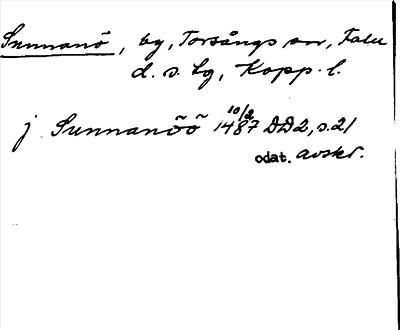 Sunnanö, by, Torsångs sn, Falu
d. s. lg, Kopp. l.
j Sunnanöö 10/2 1487 DD2, s. 21
odat. avskr.